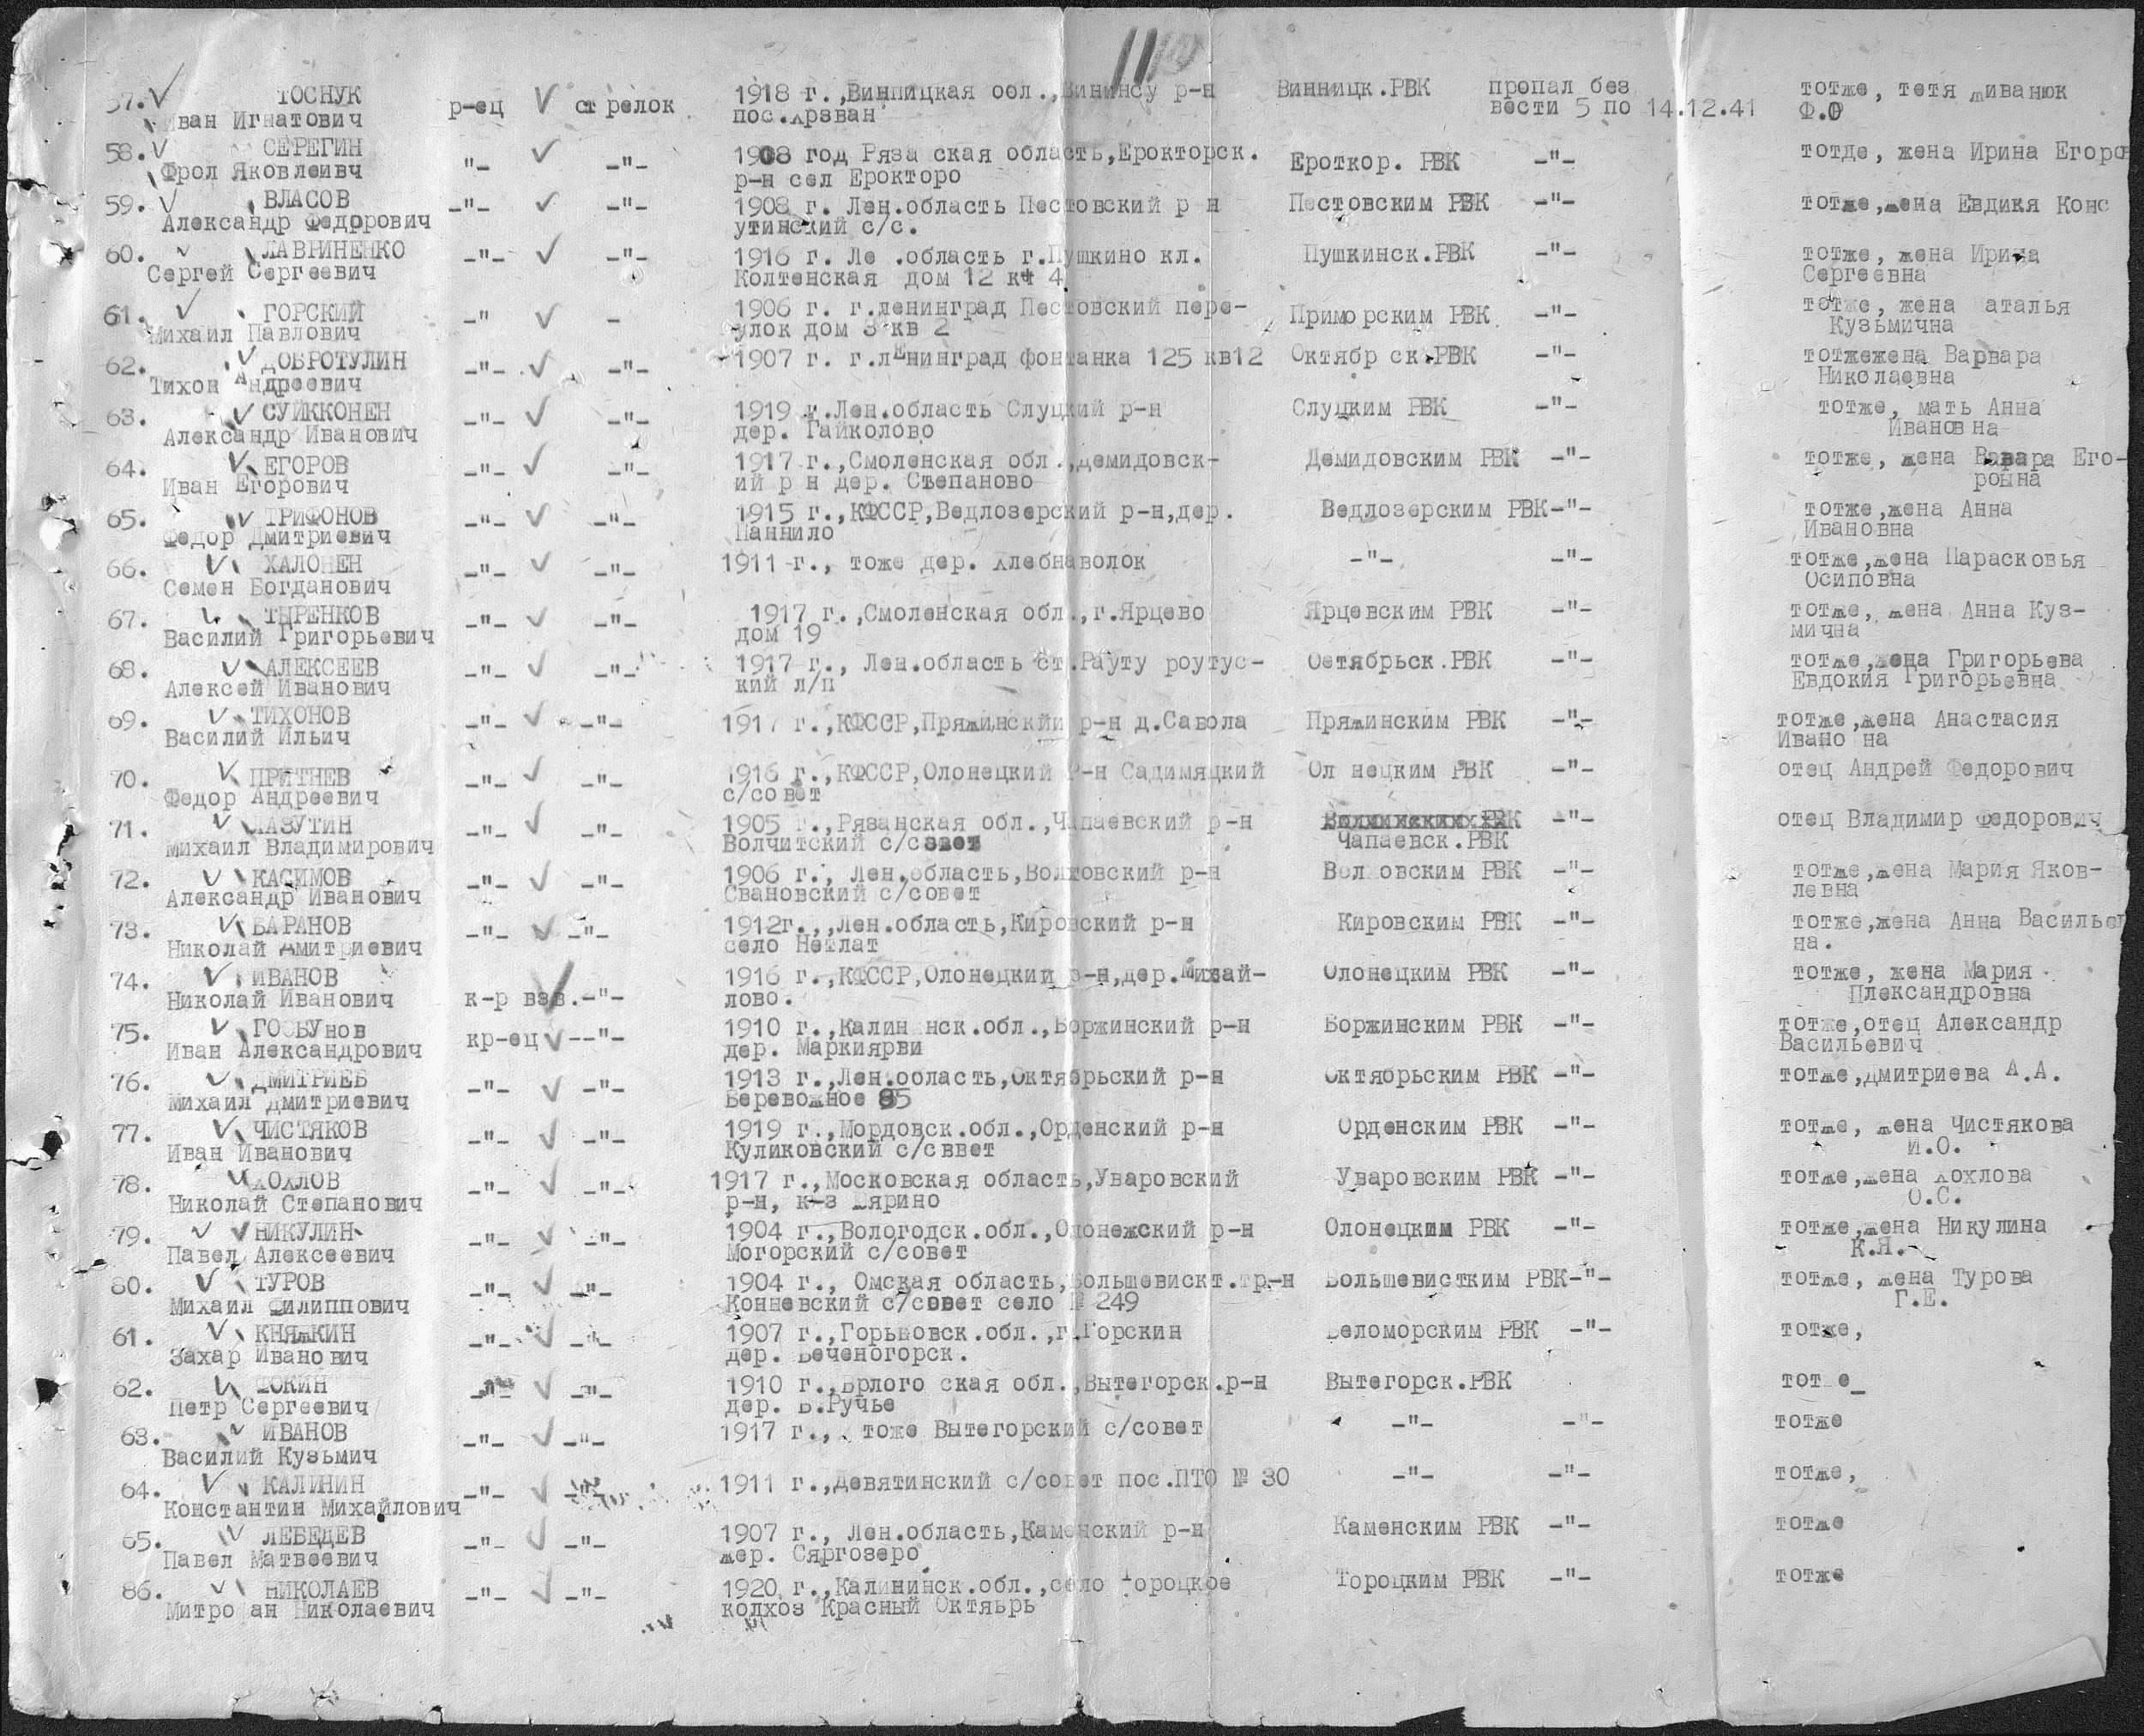 11
57. ТОСНУК р-ец стрелок 1918 г.,Винницкая обл., Винницк.РВК пропал без тотже, тетя
Иван Игнатович пос. вести 5 по 14.12.41 Ф.О
58. СЕРЕГИН "- -"- 1908 год Ряза ская область,Ерокторск. Ероткор. РВК -"- тотде, жена Ирина Егоров
Фрол Яковлеивч р-н сел Ерокторо
59. ВЛАСОВ -"- -"- 1908 г. Лен.область Пестовский р н Пестовским РВК -"- тотже,жена Евдикя Конс
Александр Федорович утинский с/с.
60. ЛАВРИНЕНКО -"- -"- 1916 г. Ле .область г.Пушкино кл. Пушкинск.РВК -"- тотже, жена Ирина
Сергей Сергеевич Колтенская дом 12 кт 4 Сергеевна
61. ГОРСКИЙ -" - 1906 г. г.ленинград Пестовский пере- Приморским РВК -"- тотже, жена аталья
Михаил Павлович улок дом 3 кв 2 Кузьмична
62. ДОБРОТУЛИН -"- -"- 1907 г. г.лЕнинград фонтанка 125 кв12 Октябр ск.РВК -"- тотжежена Варвара
Тихон Андреевич Николаевна
63. СУЙККОНЕН -"- -"- 1919 г.Лен.область Слуцкий р-н Слуцким РВК -"- тотже, мать Анна
Александр Иванович дер. Гайколово Ивановна
64. ЕГОРОВ -"- -"- 1917 г.,Смоленская обл.,демидовск- Демидовским РВК -"- тотже, жена Варара Его-
Иван Егорович ий р н дер. Степаново ровна
65. ТРИФОНОВ -"- -"- 1915 г.,КФССР,Ведлозерский р-н,дер. Ведлозерским РВК-"- тотже,жена Анна
Федор Дмитриевич Паннило Ивановна
66. ХАЛОНЕН -"- -"- 1911 г., тоже дер. Хлебнаволок -"- -"- тотже,жена Парасковья
Семен Богданович Осиповна
67. ТЫРЕНКОВ -"- -"- 1917 г.,Смоленская обл.,г.Ярцево Ярцевским РВК -"- тотже, жена Анна Куз-
Василий Григорьевич дом 19 мична
68. АЛЕКСЕЕВ -"- -"- 1917 г., Лен.область ст.Рауту роутус- Оетябрьск.РВК -"- тотже,жена Григорьева
Алексей Иванович кий л/п Евдокия Григорьевна
69. ТИХОНОВ -"- -"- 1917 г.,КФССР,Пряжинский р-н д.Савола Пряжинским РВК -"- тотже,жена Анастасия
Василий Ильич Ивано на
70. ПРИТНЕВ -"- -"- 1916 г.,КФССР,Олонецкий р-н Садимяцкий Ол нецким РВК -"- отец Андрей Федорович
Федор Андреевич с/совет
71. ЛАЗУТИН -"- -"- 1905 г.,Рязанская обл.,Чапаевский р-н -"- отец Владимир Федорович
Михаил Владимирович Волчитский с/совет Чапаевск.РВК
72. КАСИМОВ -"- -"- 1906 г., Лен.область,Волховский р-н Волховским РВК -"- тотже,жена Мария Яков-
Александр Иванович Свановский с/совет левна
73. БАРАНОВ -"- -"- 1912г.,,Лен.область,Кировский р-н Кировским РВК -"- тотже,жена Анна Васильев
Николай Дмитриевич село на.
74. ИВАНОВ 1916 г.,КФССР,Олонецкий р-н,дер.Михай- Олонецким РВК -"- тотже, жена Мария
Николай Иванович к-р взв.-"- лово. Плександровна
75. ГОРБУнов кр-ец --"- 1910 г.,Калин нск.обл.,Боржинский р-н Боржинским РВК -"- тотже,отец Александр
Иван Александрович дер. Маркиярви Васильевич
76. ДМИТРИЕВ -"- -"- 1913 г.,Лен.область,Октябрьский р-н Октябрьским РВК -"- тотже,дмитриева А.А.
Михаил Дмитриевич Беревожное 85
77. ЧИСТЯКОВ -"- -"- 1919 г.,Мордовск.обл.,Орденский р-н Орденским РВК -"- тотже, жена Чистякова
Иван Иванович Куликовский с/сввет И.О.
78. ХОХЛОВ -"- -"- 1917 г.,Московская область,Уваровский Уваровским РВК -"- тотже,жена Хохлова
Николай Степанович р-н, к-з О.С.
79. НИКУЛИН -"- -"- 1904 г.,Вологодск.обл.,Олонежский р-н Олонецким РВК -"- тотже,жена Никулина
Павел Алексеевич Могорский с/совет К.Я.
80. ТУРОВ -"- -"- 1904 г., Омская область,Большевискт.тр-н Большевистким РВК-"- тотже, жена Турова
Михаил Филиппович Конневский с/совет село № 249 Г.Е.
61. КНЯЖКИН -"- -"- 1907 г.,Горьковск.обл.,г.Горскин Беломорским РВК -"- тотже,
Захар Иванович дер. Беченогорск.
62. ФОКИН -"- -"- 1910 г.,Врлого ская обл.,Вытегорск.р-н Вытегорск.РВК тот е_
Петр Сергеевич дер. В.Ручье
63. ИВАНОВ -"- -"- 1917 г., тоже Вытегорский с/совет -"- -"- тотже
Василий Кузьмич
64. КАЛИНИН -"- -"- 1911 г.,девятинский с/совет пос.ПТО № 30 -"- -"- тотже,
Константин Михайлович
65. ЛЕБЕДЕВ -"- -"- 1907 г., Лен.область,Каменский р-н Каменским РВК -"- тотже
Павел Матвеевич жер. Сяргозеро
86. НИКОЛАЕВ -"- -"- 1920 г.,Калининск.обл.,село Тороцкое Тороцким РВК -"- тотже
Митро ан Николаевич колхоз Красный Октяьрь